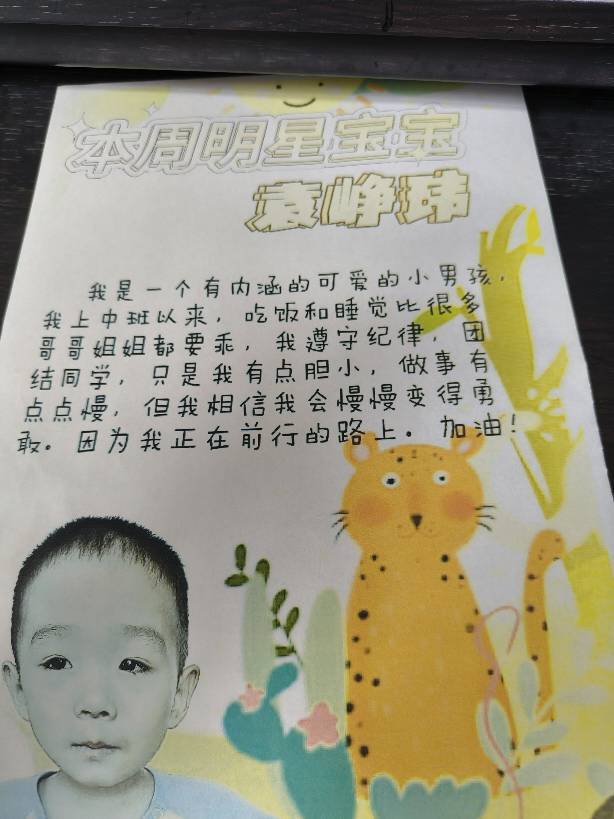 本周明星宝宝
袁峥玮
我是一个有内涵的可爱的小男孩，
我上中班以来，吃饭和睡觉比很多
哥哥姐姐都要乖，我遵守纪律，团
结同学，只是我有点胆小，做事有
点点慢，但我相信我会慢慢变得勇
敢。因为我正在前行的路上。加油！